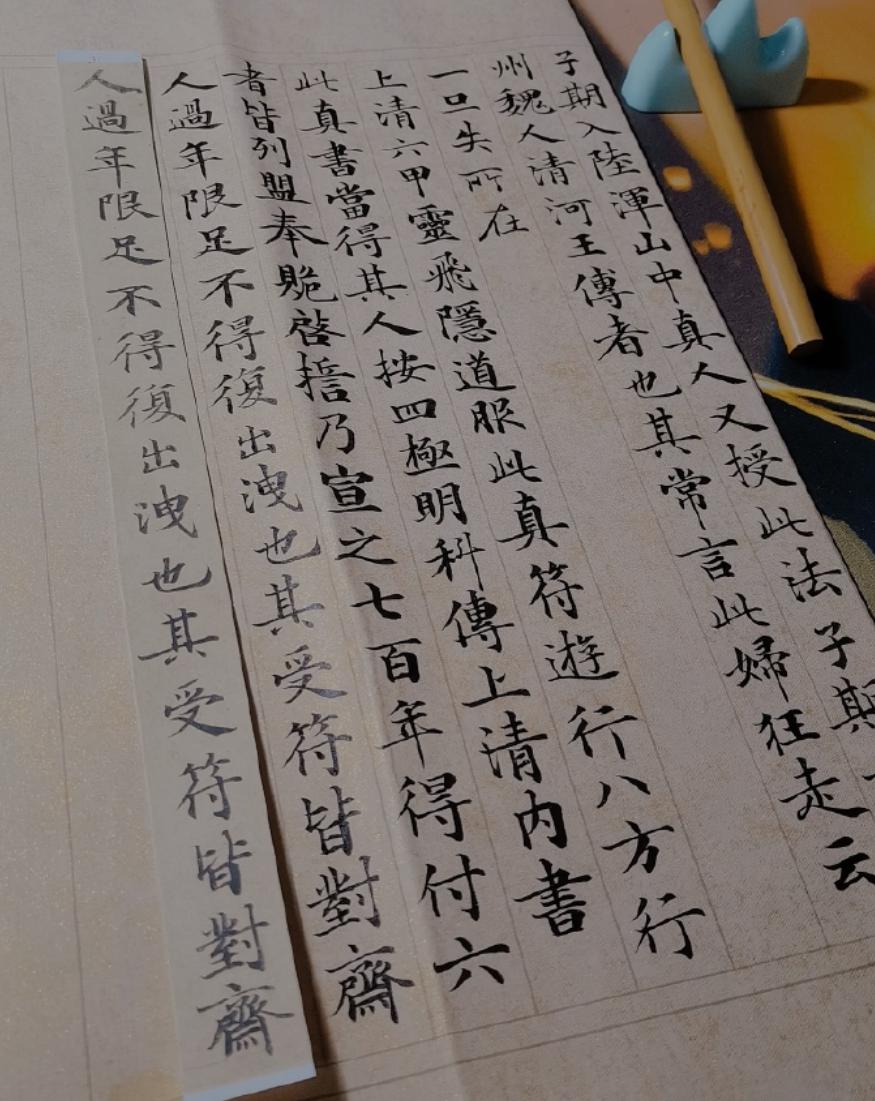 子期入陸渾山中真人又授此法子期
州魏人清河王傳者也其常言此婦狂走云
一旦失所在
上清六甲靈飛隱道服此真符遊行八方行
此真書當得其人按四極明科傳上清內書
者皆列盟奉貺啓誓乃宣之七百年得付六
人過年限足不得復出洩也其受符皆對齋
人過年限足不得復出洩也其受符皆對齋